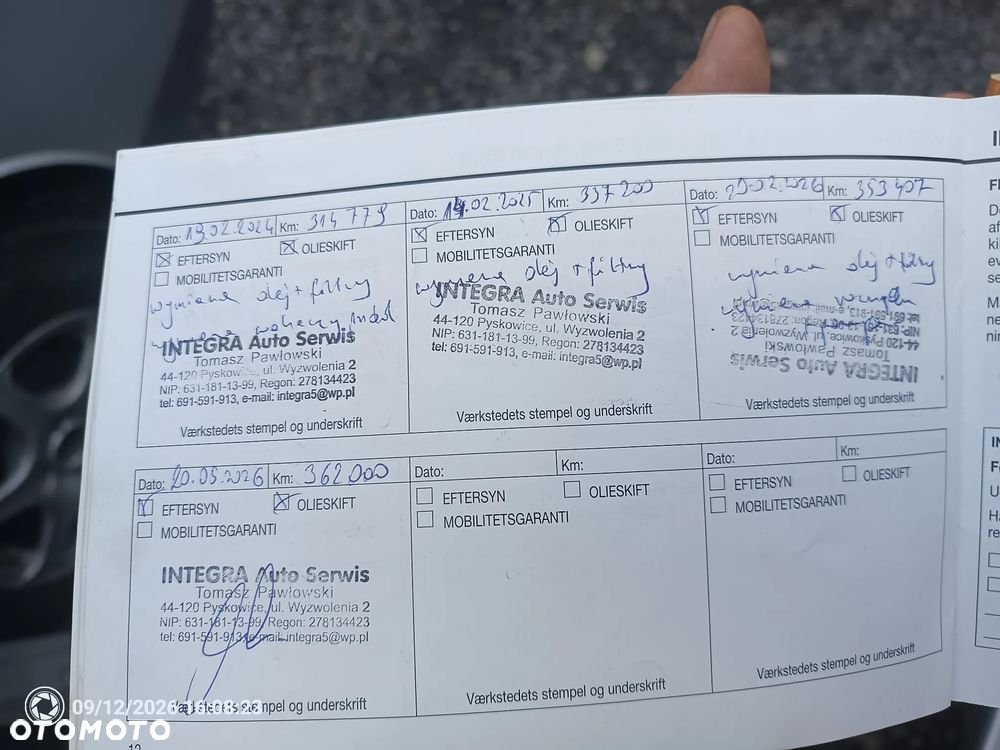 Dato: 19.02.2024 Km: 314 779
EFTERSYN OLIESKIFT
MOBILITETSGARANTI
wymiana olej + filtry
wahaczy
INTEGRA Auto Serwis
Tomasz Pawłowski
44-120 Pyskowice, ul. Wyzwolenia 2
NIP: 631-181-13-99, Regon: 278134423
tel: 691-591-913, e-mail: integra5@wp.pl
Værkstedets stempel og underskrift
Dato: 14.02.2025 Km: 337 200
EFTERSYN OLIESKIFT
MOBILITETSGARANTI
wymiana olej + filtry
INTEGRA Auto Serwis
Tomasz Pawłowski
44-120 Pyskowice, ul. Wyzwolenia 2
NIP: 631-181-13-99, Regon: 278134423
tel: 691-591-913, e-mail: integra5@wp.pl
Værkstedets stempel og underskrift
Dato: 20.02.2026 Km: 353 407
EFTERSYN OLIESKIFT
MOBILITETSGARANTI
wymiana olej + filtry
wymiana rozrządu
INTEGRA Auto Serwis
Tomasz Pawłowski
44-120 Pyskowice, ul. Wyzwolenia 2
NIP: 631-181-13-99, Regon: 278134423
tel: 691-591-913, e-mail: integra5@wp.pl
Værkstedets stempel og underskrift
Dato: 20.05.2026 Km: 362000
EFTERSYN OLIESKIFT
MOBILITETSGARANTI
INTEGRA Auto Serwis
Tomasz Pawłowski
44-120 Pyskowice, ul. Wyzwolenia 2
NIP: 631-181-13-99, Regon: 278134423
tel: 691-591-913, e-mail: integra5@wp.pl
Værkstedets stempel og underskrift
Dato: Km:
EFTERSYN OLIESKIFT
MOBILITETSGARANTI
Værkstedets stempel og underskrift
Dato: Km:
EFTERSYN OLIESKIFT
MOBILITETSGARANTI
Værkstedets stempel og underskrift
12
OTOMOTO